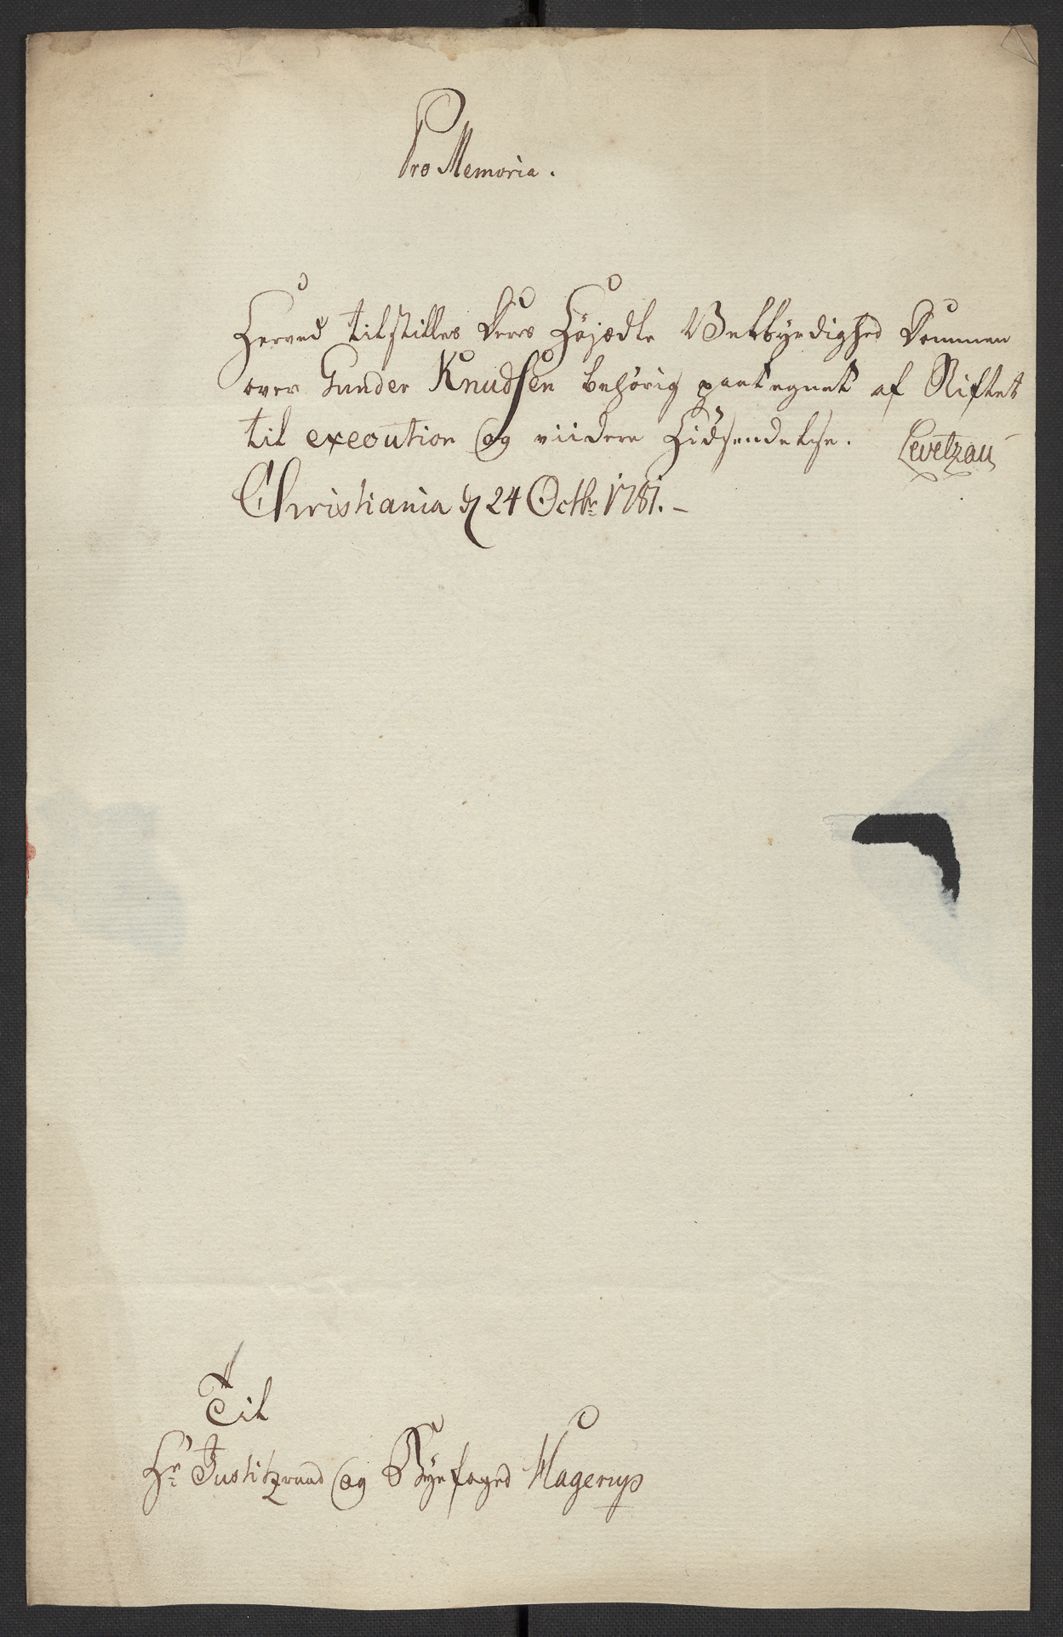 Pro Memoria.
Herved tilstilles Deres Höjædle Velbyrdighed Dommen
over Gunder Knudsen behörig paategnet af Stiftet
til execution og viidere Hidsendelse. Levetzau
Christiania d 24 Octbr 1781. -
Til
Hr Justitzraad og Byefoged Hagerup